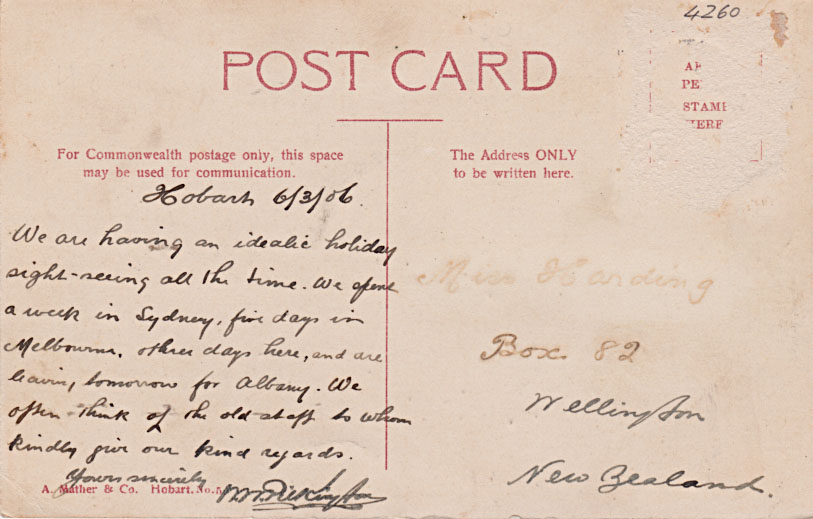 4260
POST CARD
AF
PE
STAMI
HERE
For Commonwealth postage only, this space
may be used for communication.
The Address ONLY
to be written here.
Hobart 6/3/06.
We are having an idealic holiday
sight-seeing all the time. We spent
a week in Sydney, five days in
Melbourne, three days here, and are
leaving tomorrow for Albany. We
often think of the old staff to whom
kindly give our kind regards.
Yours sincerely
Miss Harding
Box 82
Wellington
New Zealand.
A. Mather & Co. Hobart. No. 5